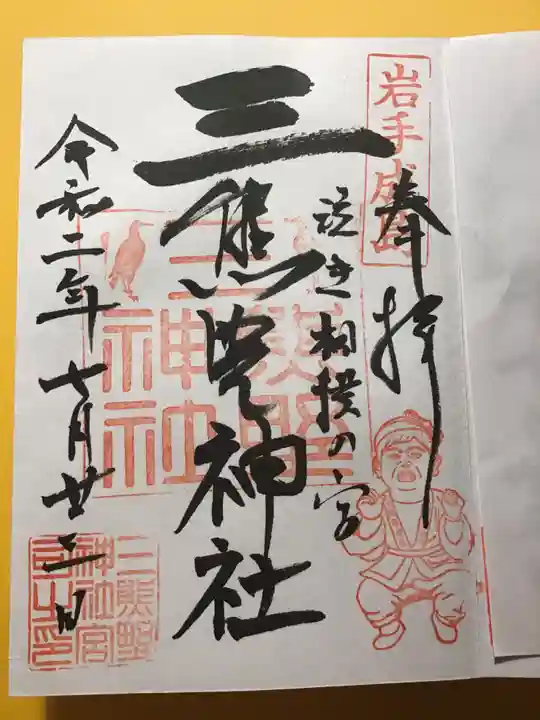 岩手成島
奉拝
泣き相撲の宮
三熊野神社
三熊野
神社
令和二年七月廿三日
三熊野
神社宮
司之印